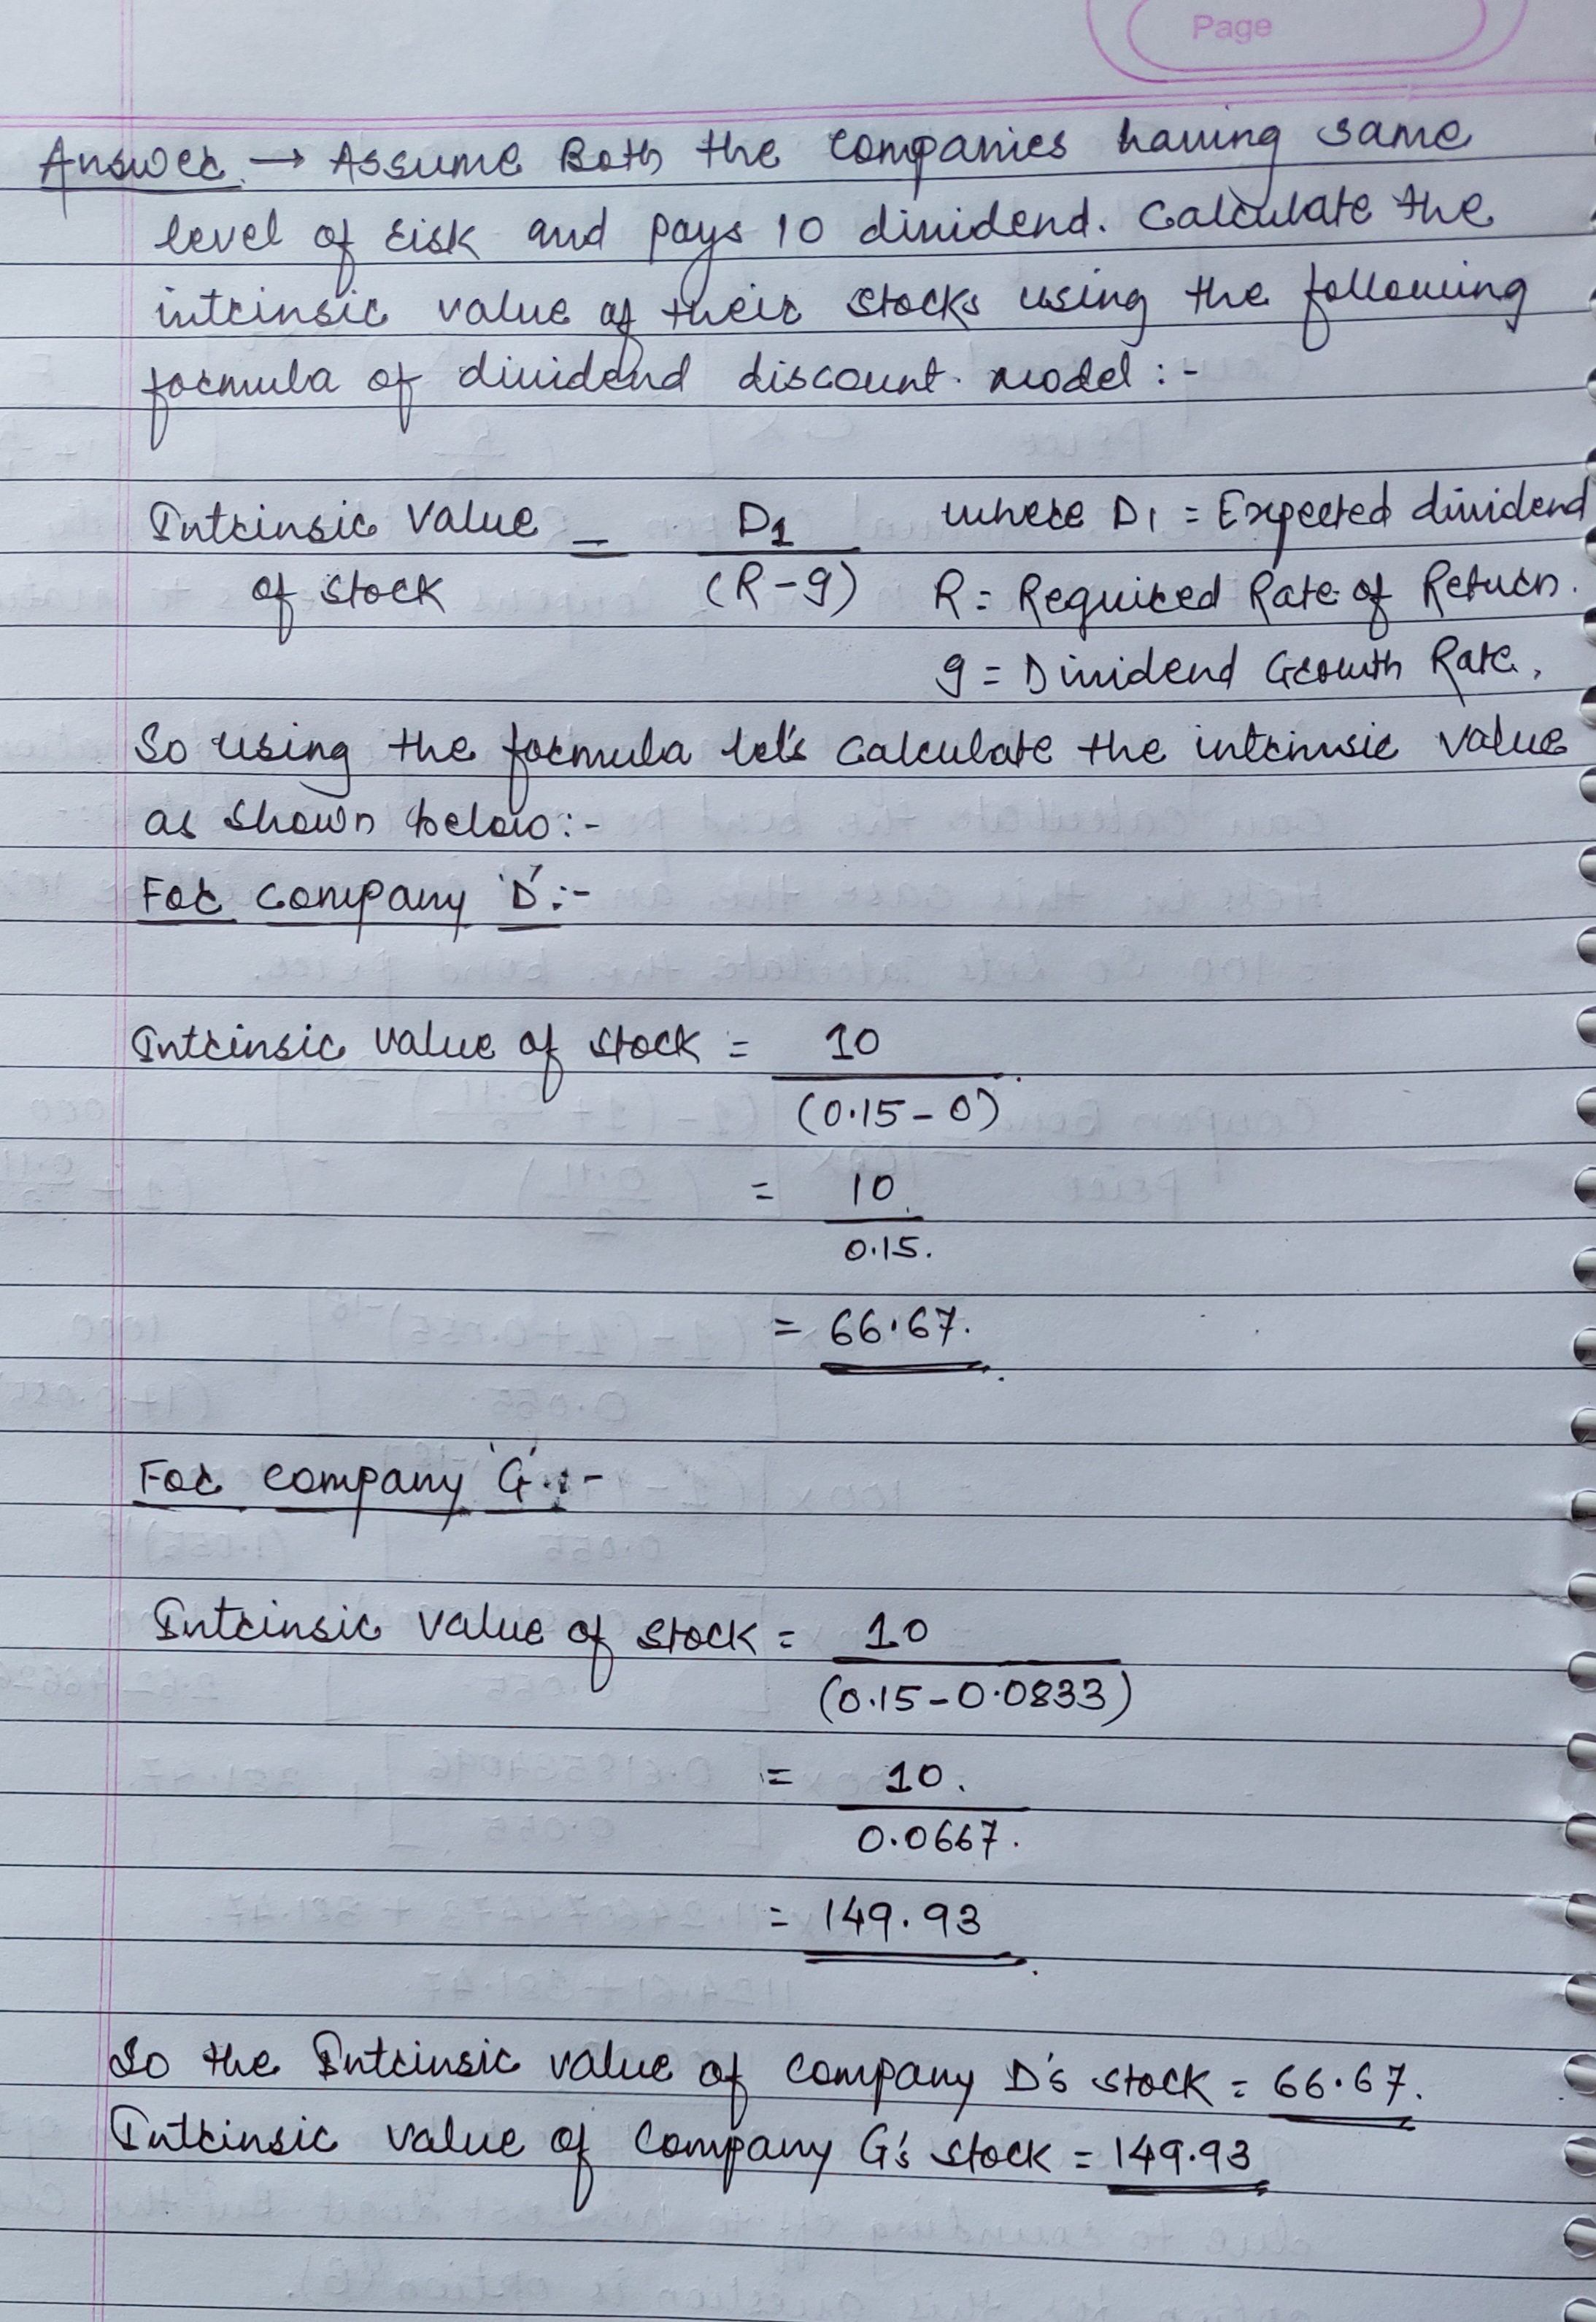 Page
Answer. → Assume Both the companies having same
level of risk and pays 10 dividend. Calculate the
intrinsic value of their stocks using the following
formula of dividend discount model :-
Intrinsic Value = D1 where D1 = Expected dividend
of stock (R-g) R = Required Rate of Return.
g = Dividend Growth Rate.
So using the formula let's calculate the intrinsic value
as shown below:-
For company 'D':-
Intrinsic value of stock = 10
(0.15-0)
= 10
0.15.
= 66.67.
For company 'G':-
Intrinsic value of stock = 10
(0.15-0.0833)
= 10.
0.0667.
= 149.93
So the Intrinsic value of company D's stock = 66.67.
Intrinsic value of Company G's stock = 149.93